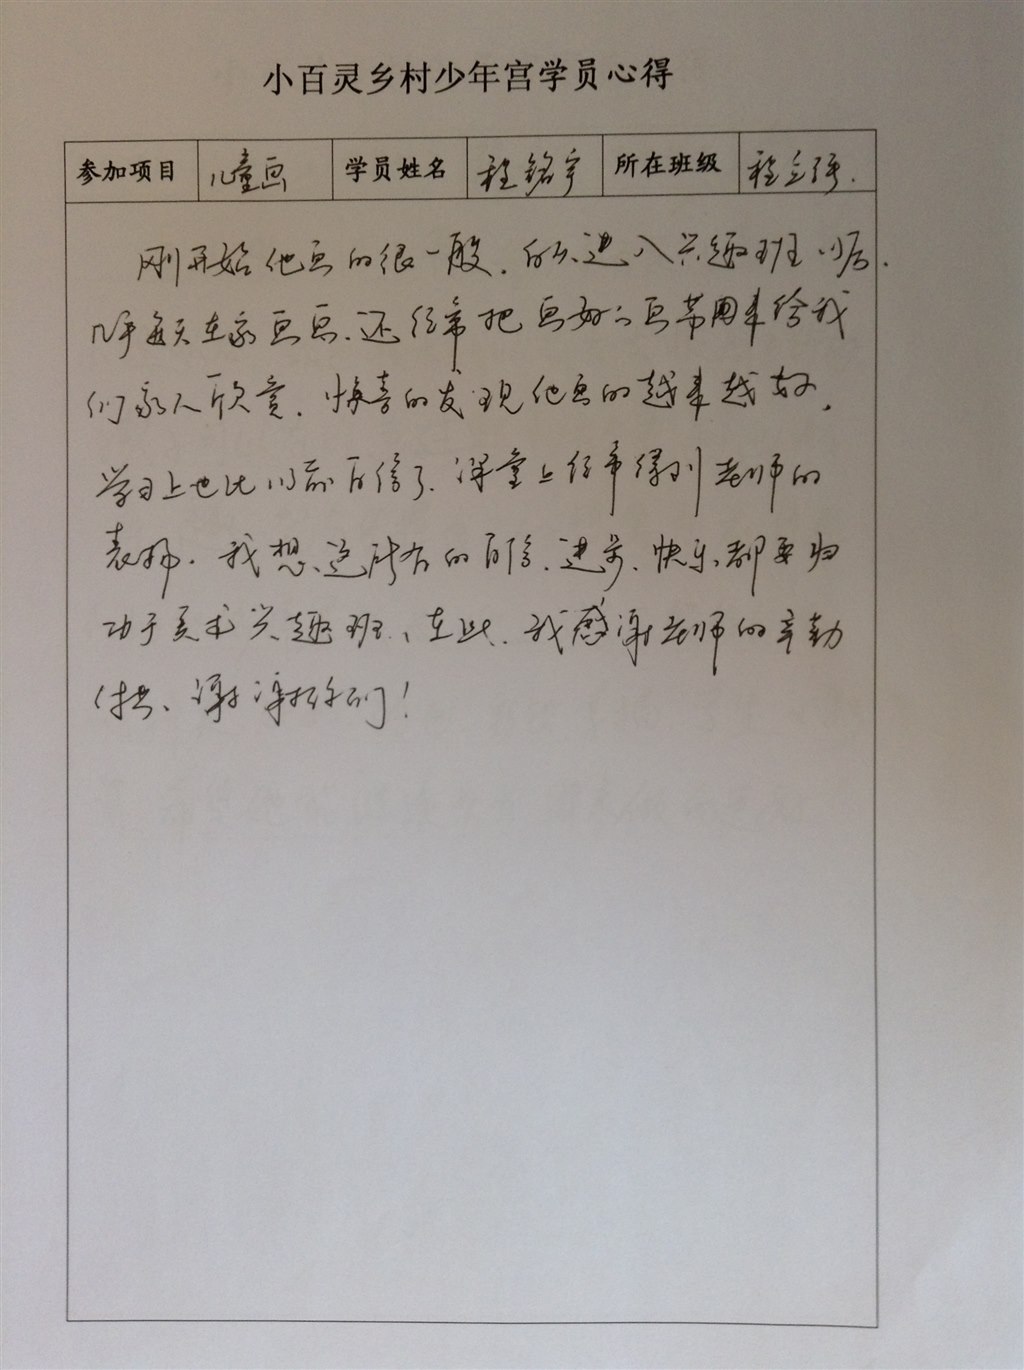 小百灵乡村少年宫学员心得
参加项目 儿童画 学员姓名 程铭宇 所在班级 程立强.
刚开始他画的很一般. 自从进入兴趣班以后.
几乎每天在家画画. 还经常把画好的画带回来给我
们家人欣赏. 惊喜的发现他画的越来越好,
学习上也比以前自信了. 课堂上经常得到老师的
表扬. 我想、这所有的自信、进步、快乐都要归
功于美术兴趣班、在此、我感谢老师的辛勤
付出、谢谢你们!